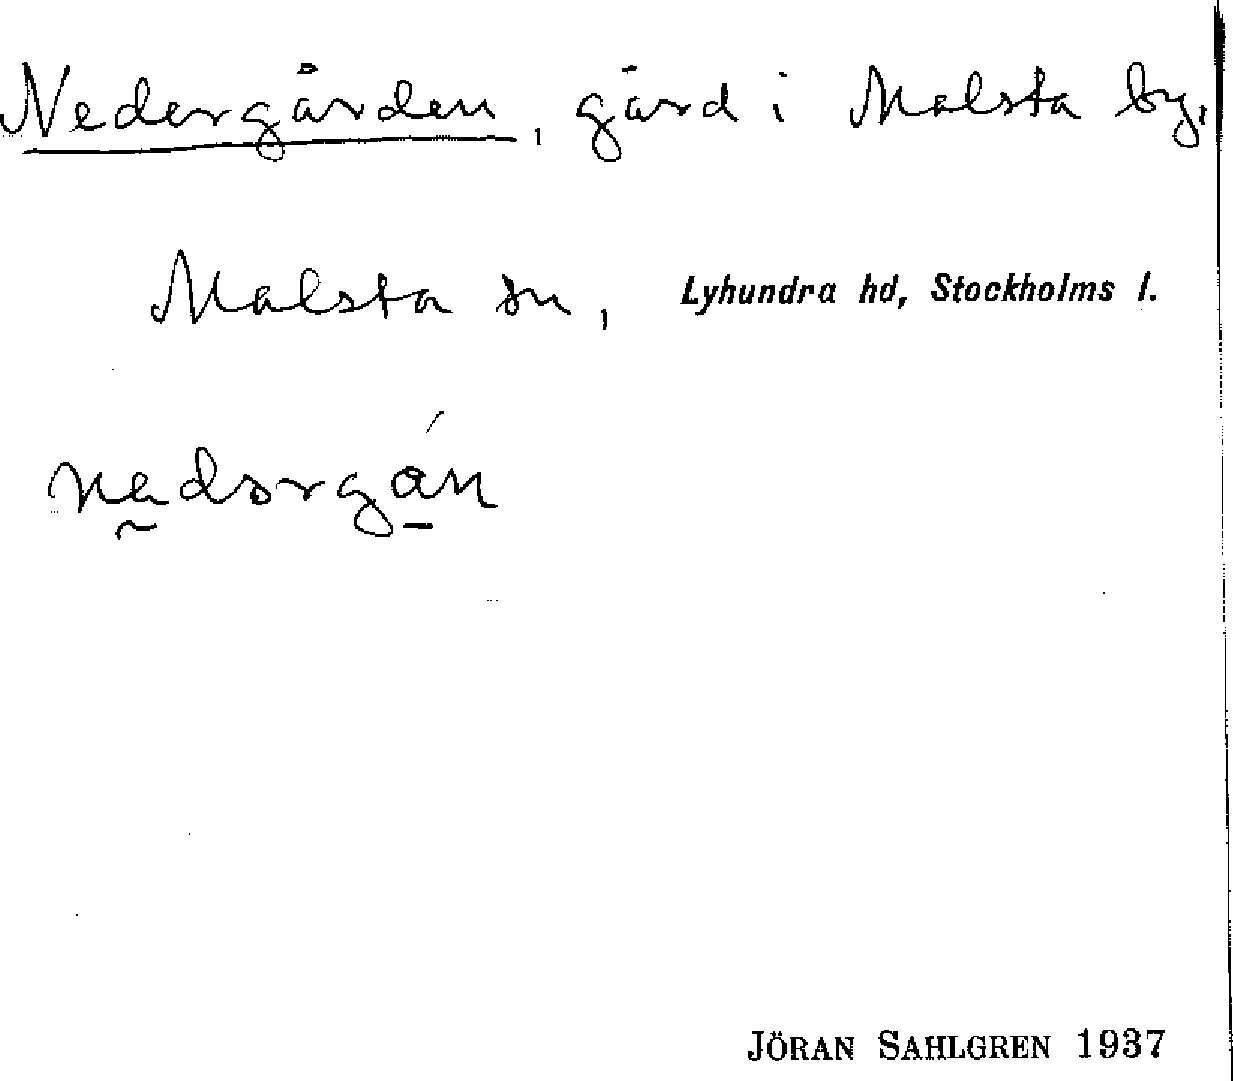 Nedergården, gård i Malsta by,
Malsta sn, Lyhundra hd, Stockholms l.
JÖRAN SAHLGREN 1937